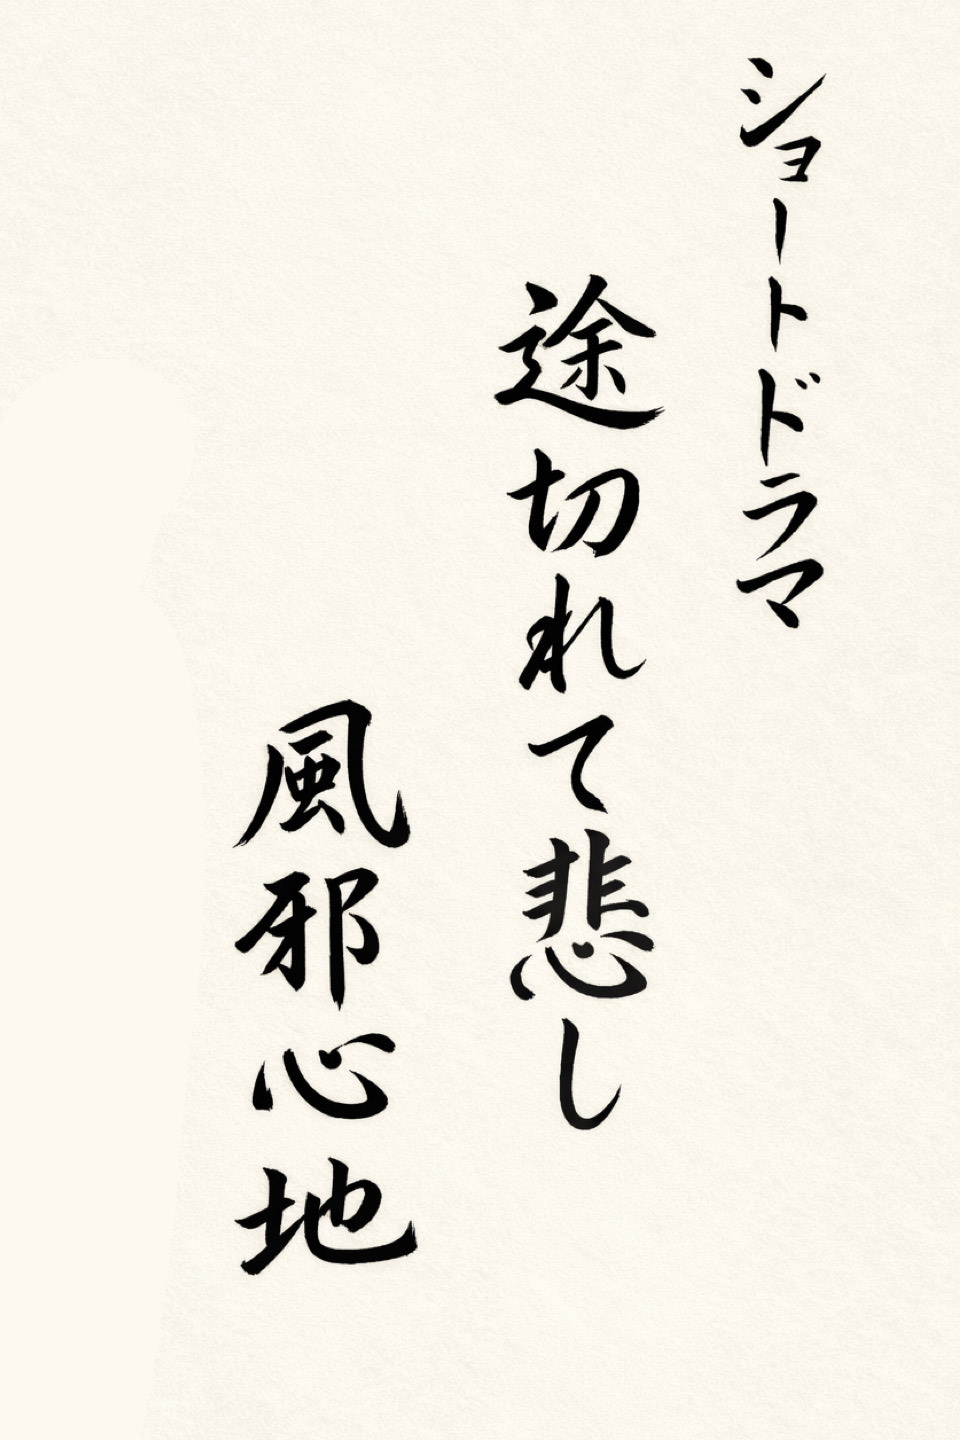 ショートドラマ
途切れて悲し
風邪心地